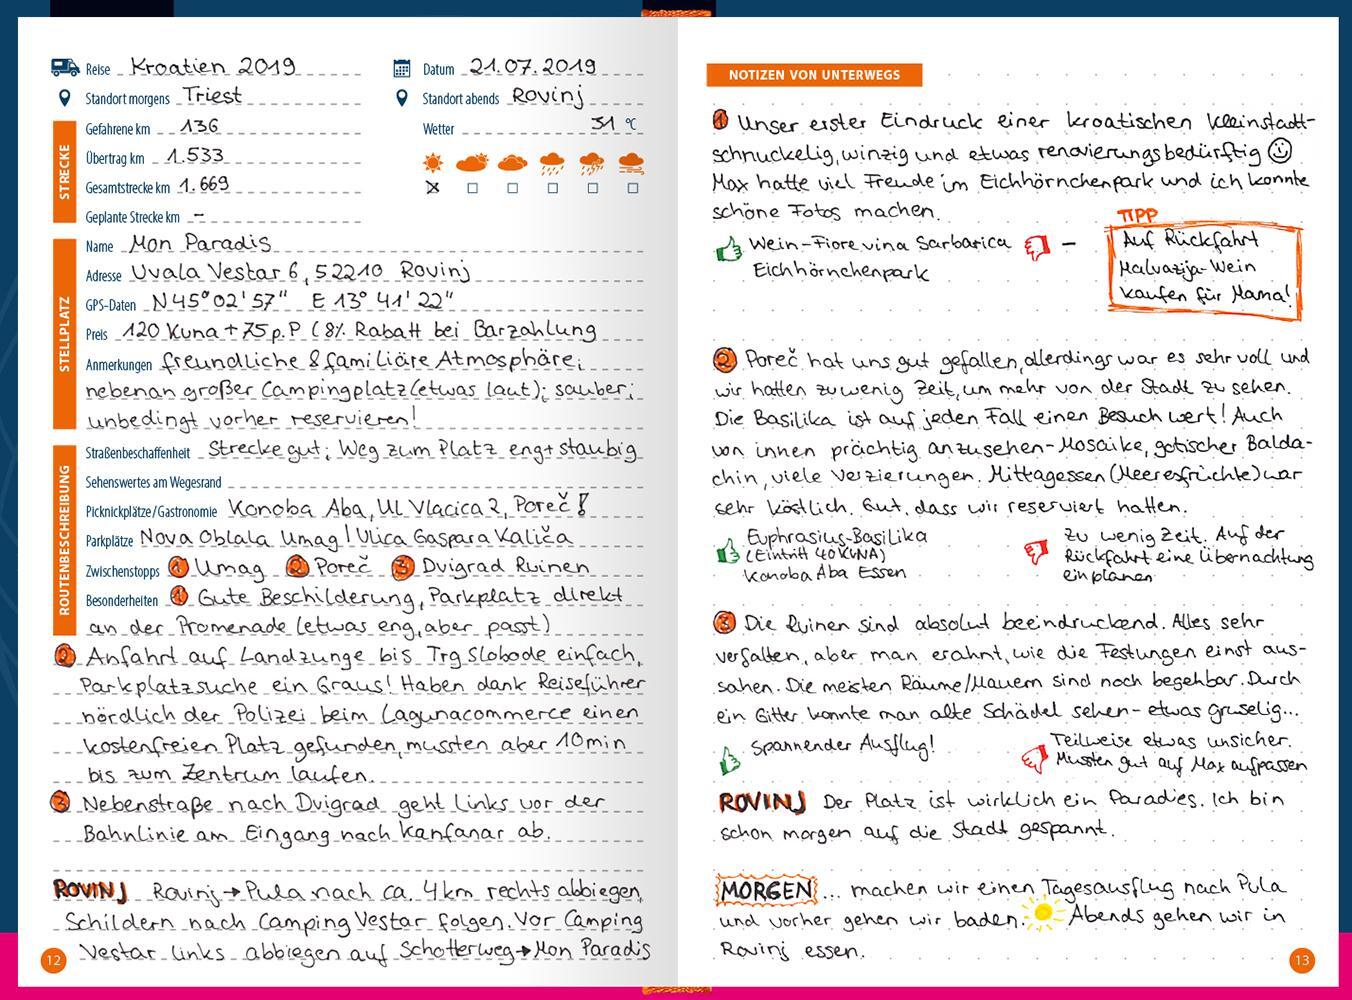 Reise Kroatien 2019
Datum 21.07.2019
Standort morgens Triest
Standort abends Rovinj
STRECKE
Gefahrene km 136
Wetter 31 °C
Übertrag km 1.533
Gesamtstrecke km 1.669
Geplante Strecke km –
STELLPLATZ
Name Mon Paradis
Adresse Uvala Vestar 6, 52210 Rovinj
GPS-Daten N 45° 02' 57" E 13° 41' 22"
Preis 120 Kuna + 75 p.P (8% Rabatt bei Barzahlung
Anmerkungen freundliche & familiäre Atmosphäre;
nebenan großer Campingplatz (etwas laut); sauber;
unbedingt vorher reservieren!
ROUTENBESCHREIBUNG
Straßenbeschaffenheit Strecke gut; Weg zum Platz eng + staubig
Sehenswertes am Wegesrand
Picknickplätze/Gastronomie Konoba Aba, Ul Vlacica 2, Poreč!
Parkplätze Nova Oblala Umag / Ulica Gaspara Kališa
Zwischenstopps 1 Umag 2 Poreč 3 Dvigrad Ruinen
Besonderheiten 1 Gute Beschilderung, Parkplatz direkt
an der Promenade (etwas eng, aber passt)
2 Anfahrt auf Landzunge bis Trg Slobode einfach,
Parkplatzsuche ein Graus! Haben dank Reiseführer
nördlich der Polizei beim Lagunacommerce einen
kostenfreien Platz gefunden, mussten aber 10 min
bis zum Zentrum laufen.
3 Nebenstraße nach Dvigrad geht links vor der
Bahnlinie am Eingang nach Kanfanar ab.
ROVINJ Rovinj → Pula nach ca. 4 km rechts abbiegen,
Schildern nach Camping Vestar folgen. Vor Camping
Vestar links abbiegen auf Schotterweg → Mon Paradis
12
NOTIZEN VON UNTERWEGS
1 Unser erster Eindruck einer kroatischen Kleinstadt-
schnuckelig, winzig und etwas renovierungsbedürftig ☺
Max hatte viel Freude im Eichhörnchenpark und ich konnte
schöne Fotos machen.
Wein-Fiore vina Sarbarica
Eichhörnchenpark
–
TIPP
Auf Rückfahrt
Malvazija-Wein
kaufen für Mama!
2 Poreč hat uns gut gefallen, allerdings war es sehr voll und
wir hatten zu wenig Zeit, um mehr von der Stadt zu sehen.
Die Basilika ist auf jeden Fall einen Besuch wert! Auch
von innen prächtig anzusehen – Mosaike, gotischer Balda-
chin, viele Verzierungen. Mittagessen (Meeresfrüchte) war
sehr köstlich. Gut, dass wir reserviert hatten.
Euphrasius-Basilika
(Eintritt 40 KUNA)
Konoba Aba Essen
Zu wenig Zeit. Auf der
Rückfahrt eine Übernachtung
einplanen
3 Die Ruinen sind absolut beeindruckend. Alles sehr
verfallen, aber man erahnt, wie die Festungen einst aus-
sahen. Die meisten Räume/Mauern sind noch begehbar. Durch
ein Gitter konnte man alte Schädel sehen – etwas gruselig...
Spannender Ausflug!
Teilweise etwas unsicher.
Mussten gut auf Max aufpassen
ROVINJ Der Platz ist wirklich ein Paradies. Ich bin
schon morgen auf die Stadt gespannt.
MORGEN ... machen wir einen Tagesausflug nach Pula
und vorher gehen wir baden. Abends gehen wir in
Rovinj essen.
13